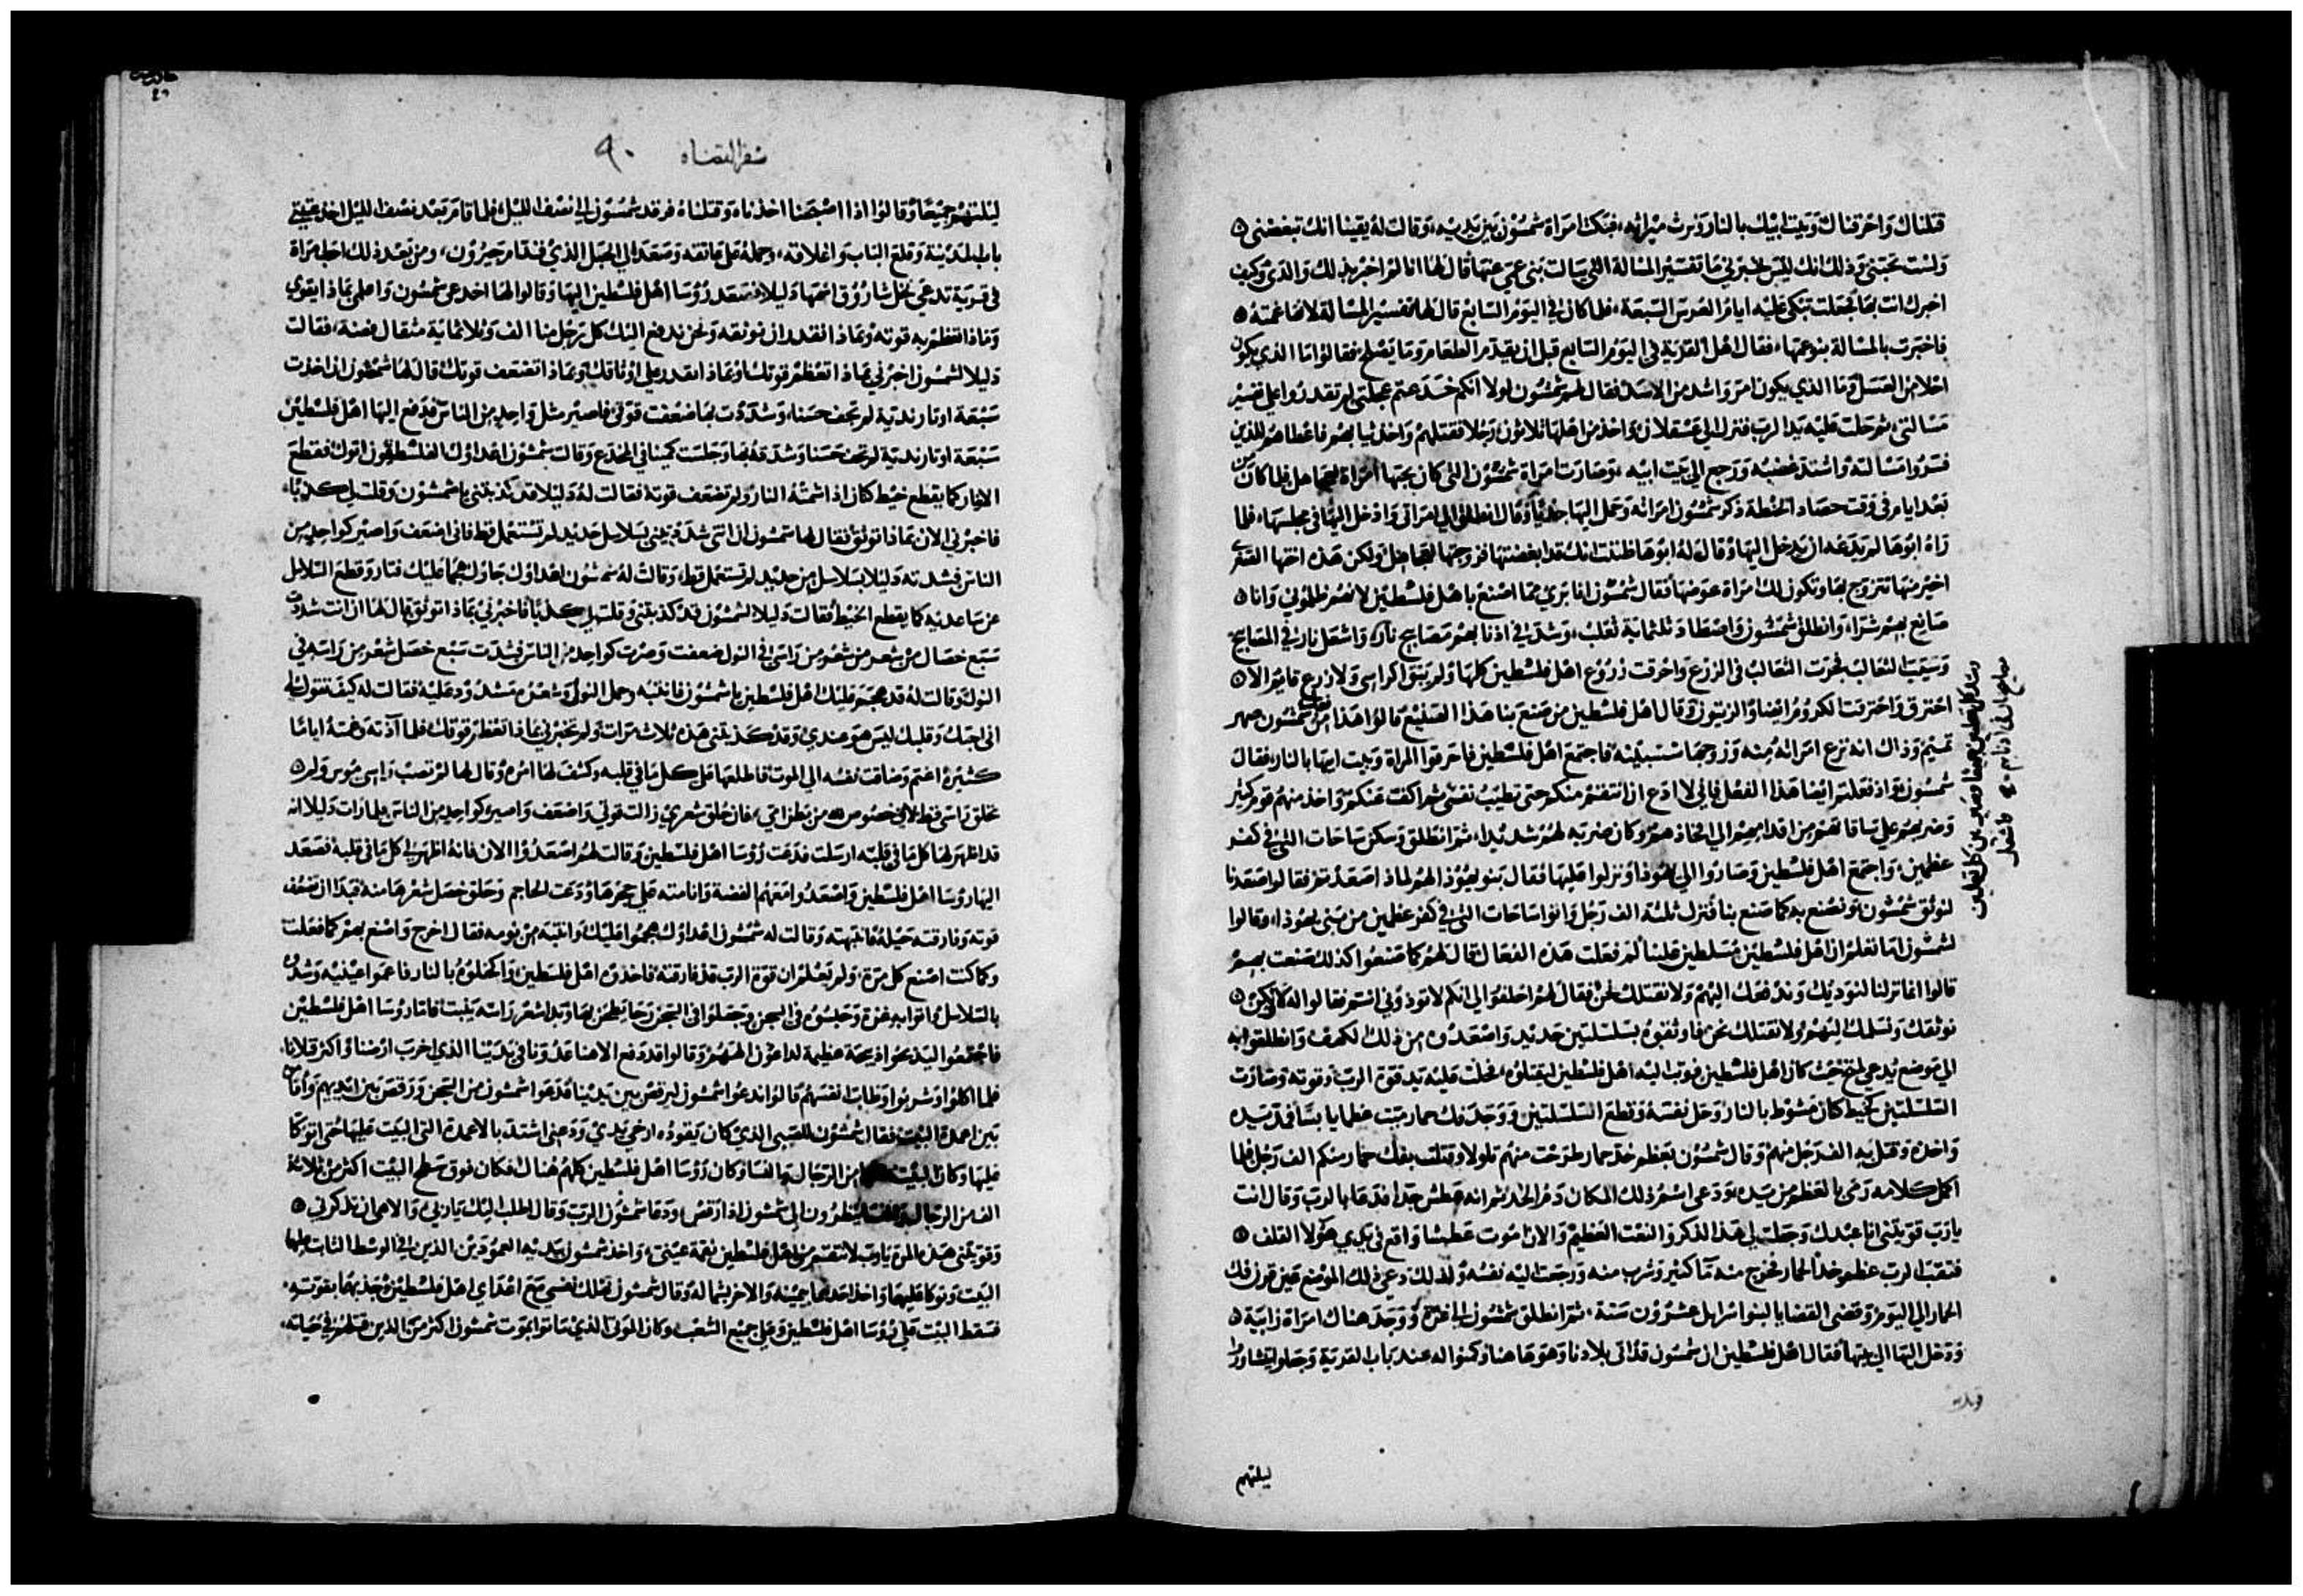 قتلناك واحرقناك وبيت ابيك بالنار ونرث ميراثه، فبكت امراة شمشون بين يديه، وقالت له يقينا انك تبغضني
ولست تحبني وذلك انك ليس تخبرني ما تفسير المسالة التي سالت بني عمي عنها قال لها انا لم اخبر بذلك والدي وكيف
اخبرك انت بها فجعلت تبكي عليه ايام العرس السبعة، فلما كان في اليوم السابع قال لها تفسير المسالة لانها غمته
فاخبرت بالمسالة بنو عمها، فقال اهل القرية في اليوم السابع قبل ان يقدم الطعام وما يصلح فقالوا ما الذي يكون
احلا من العسل وما الذي يكون امر واشد من الاسد فقال لهم شمشون لولا انكم خدعتم عجلتي لم تقدروا علي تفسير
مسالتي، ثم حلت عليه يد الرب فنزل الي عسقلان واخذ من اهلها ثلاثون رجلا فقتلهم واخذ ثيابهم فاعطاهم للذين
فسروا مسالته واشتد غضبه ورجع الي بيت ابيه، وصارت امراة شمشون التي كان يحبها امراة لجاهل فلما كان
بعد ايام في وقت حصاد الحنطة ذكر شمشون امراته وحمل اليها جديا وقال انطلق الي امراتي وادخل اليها في مجلسها، فلما
راه ابوها لم يدعه ان يدخل اليها وقال له ابوها ظننت انك قد ابغضتها فزوجتها لجاهل ولكن هذه اختها الصغري
اخير منها تتزوج بها وتكون لك امراة عوضها فقال شمشون انا بري مما اصنع باهل فلسطين لانهم ظلموني وانا
صانع بهم شرا، وانطلق شمشون واصطاد ثلثماية ثعلب، وشد في اذنابهم مصابيح نار، واشعل نار في المصابيح
وسيب الثعالب فجرت الثعالب في الزرع واحرقت زروع اهل فلسطين كلها ولم يبق اكراسي ولا زرع قايم الا
احترق واحترقت الكروم ايضا والزيتون وقال اهل فلسطين من صنع بنا هذا الصنيع قالوا هذا من شمشون صهر
تمنيم وذاك انه نزع امراته منه وزوجها شبينه فاجتمع اهل فلسطين فاحرقوا المراة وبيت ابيها بالنار، فقال
شمشون واذ فعلتم ايضا هذا الفعل فاني لا ادع ان انتقم منكم حتي تطيب نفسي ثم اكفت عنكم واخذ منهم قوم كثير
وضربهم علي ساقاتهم من اقدامهم الي افخاذهم وكان ضربه لهم شديدا، ثم انطلق وسكن ساحات التي في كفر
عظمين، واجتمع اهل فلسطين وصاروا الي يهوذا ونزلوا عليها فقال بنو يهوذا لهم لماذا صعدتم فقالوا صعدنا
لنوثق شمشون ونصنع به كما صنع بنا فنزل ثلثة الف رجل واتوا ساحات التي في كفر عظمين من بني يهوذا، وقالوا
لشمشون اما تعلم ان اهل فلسطين مسلطين علينا لم فعلت هذه الفعال قال لهم كما صنعوا كذلك صنعت بهم
قالوا انما نزلنا لنوديك وندفعك اليهم ولا نقتلك نحن فقال لهم احلفوا لي انكم لا توذوني انتم فقالوا له لا لكن
نوثقك ونسلمك اليهم ولا نقتلك نحن فاوثقوه بسلسلتين حديد واصعدوه من ذلك الكهف وانطلقوا به
الي موضع يدعي لحي حيث كان اهل فلسطين فوثب اليه اهل فلسطين ليقتلوه فحلت عليه يد قوة الرب وقوته وصارت
السلسلتين كخيط كان مشوط بالنار وحل نفسه وقطع السلسلتين ووجد فك حمار ميت عظما يابسا فمد يده
واخذه وقتل به الف رجل منهم وقال شمشون بعظم خد حمار طرحت منهم تلولا وقتلت بفك حمار منكم الف رجل فلما
اكمل كلامه رمي بالعظم من يده ودعي اسم ذلك المكان دم الخد ثم انه عطش جدا فدعا بالرب وقال انت
يا رب قويتني انا عبدك وجعلت لي هذا الذكر والنعت العظيم والان اموت عطشا واقع في يدي هولا الغلف
فثقب الرب عظم خد الحمار فخرج منه ما كثير وشرب منه ورجعت اليه نفسه ولذلك دعي ذلك الموضع عين قرن فك
الحمار الي اليوم وقضي القضايا لبنو اسرايل عشرون سنة، ثم انطلق شمشون الي غزة ووجد هناك امراة زانية
ودخل اليها الي بيتها فقال اهل فلسطين ان شمشون قد اتي بلادنا وهو هاهنا وكمنوا له عند باب القرية وجعلوا يتشاوروا
ليلتهم
سفر القضاه ٩٠
ليلتهم جميعا وقالوا اذا اصبحنا اخذناه وقتلناه فرقد شمشون الي نصف الليل، فلما قام بعد نصف الليل اخذ عتبتي
باب المدينة وقلع الباب واغلاقه، وحمله علي عاتقه وصعد الي الجبل الذي قدام حبرون، ومن بعد ذلك احب امراة
في قرية تدعي نخل شاروق اسمها دليلا، فصعد روسا اهل فلسطين اليها وقالوا لها اخدعي شمشون واعلمي بماذا يقوي
وماذا تعظم به قوته وبماذا نقدر ان نوثقه ونحن ندفع اليك كل رجل منا الف وثلاثماية مثقال فضة، فقالت
دليلا لشمشون اخبرني بماذا تعظم قوتك وبماذا نقدر علي اوثاقك وبماذا تضعف قوتك قال لها شمشون ان اخذت
سبعة اوتار ندية لم تجف حسنا، وشددت بها ضعفت قوتي فاصير مثل واحد من الناس فدفع اليها اهل فلسطين
سبعة اوتار ندية لم تجف حسنا وشدته بها وجلست كمينا في المخدع وقالت شمشون اعداوك الفلسطينيون اتوك فقطع
الاوتار كما يقطع خيط كتان اذا اشمته النار ولم تضعف قوته فقالت له دليلا قد كذبتني يا شمشون وقلت لي كذبا،
فاخبرني الان بماذا توثق فقال لها شمشون ان انتي شدتيني بسلاسل حديد لم تستعمل قط فاني اضعف واصير كواحد من
الناس فشدته دليلا بسلاسل من حديد لم تستعمل قط، وقالت له شمشون اعداوك جاوك هجما عليك فثار وقطع السلاسل
عن ساعديه كما يقطع الخيط فقالت دليلا لشمشون قد كذبتني وقلت لي كذبا فاخبرني بماذا توثق قال لها ان انت شددت
سبع خصال من شعر راسي في النول ضعفت وصرت كواحد من الناس فشدت سبع خصل شعر من راسه في
النول وقالت له قد هجم عليك اهل فلسطين يا شمشون فانتبه وحمل النول وشعره مشدود عليه فقالت له كيف تقول لي
اني احبك وقلبك ليس هو عندي وقد كذبتني هذه ثلاث مرات ولم تخبرني بماذا تعظم قوتك فلما آذته وغمته اياما
كثيرة اغتم وضاقت نفسه الي الموت فاطلعها علي كل ما في قلبه وكشف لها امره وقال لها لم تصب راسي موس ولم
تحلق راسي قط لاني مخصوص لله من بطن امي، فان حلق شعري زالت قوتي واضعف واصير كواحد من الناس، فلما رات دليلا انه
قد اظهر لها كل ما في قلبه ارسلت فدعت روسا اهل فلسطين وقالت لهم اصعدوا الان فانه اظهر لي كل ما في قلبه فصعد
اليها روسا اهل فلسطين واصعدوا معهم الفضة وانامته علي حجرها ودعت الحاجم وحلق خصل شعرها منه فبدا ان تضعف
قوته وفارقته حيله فانبهته وقالت له شمشون اعداوك هجموا عليك وانتبه من نومه فقال اخرج واصنع بهم كما فعلت
وكما كنت اصنع كل مرة، ولم يعلم ان قوة الرب قد فارقته فاخذوه اهل فلسطين واكحلوه بالنار فاعموا عينيه وشدوه
بالسلاسل واتوا به غزة وحبسوه في السجن وجعلوا في السجن رحا يطحن بها وبدا شعر راسه ينبت فاما روسا اهل فلسطين
فاجتمعوا ليذبحوا ذبيحة عظيمة لداغون الههم وقالوا قد دفع الاهنا عدونا في يدينا الذي اخرب ارضنا واكثر قتلانا،
فلما اكلوا وشربوا وطابت انفسهم قالوا ندعوا شمشون ليرقص بين يدينا فدعوا شمشون من السجن ورقص بين ايديهم واقاموه
بين اعمدة البيت فقال شمشون للصبي الذي كان يقوده ارخي يدي ودعني استند بالاعمدة التي البيت عليها حتي اتوكا
عليها وكان البيت من الرجال والنسا وكان روسا اهل فلسطين كلهم هناك فكان فوق سطح البيت اكثر من ثلاثة
الف من الرجال والنسا ينظرون الي شمشون اذا رقص ودعا شمشون الرب وقال اطلب اليك يا ربي والاهي ان تذكرني
وقويتني هذه المرة يا رب لانتقم من اهل فلسطين نقمة عيني، واخذ شمشون بيديه العمودين الذين في الوسط الثابت عليها
البيت وتوكا عليهما واخذ احدهما بيمينه والاخر بشماله وقال شمشون تهلك نفسي مع اعداي اهل فلسطين وجذبهما بقوته،
فسقط البيت علي روسا اهل فلسطين وعلي جميع الشعب وكان الموتي الذي ماتوا بموت شمشون اكثر من الذين قتلهم في حياته،